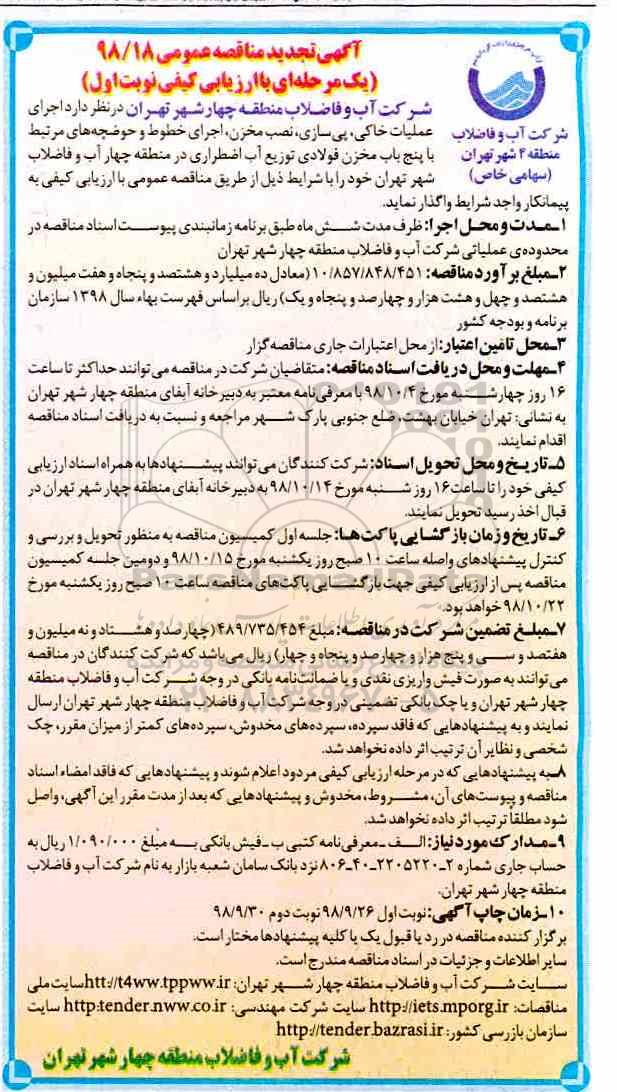 آگهی تجدید مناقصه عمومی ۹۸/۱۸
(یک مرحله‌ای با ارزیابی کیفی نوبت اول)
شرکت آب و فاضلاب
منطقه ۴ شهر تهران
(سهامی خاص)
شرکت آب و فاضلاب منطقه چهار شهر تهران در نظر دارد اجرای
عملیات خاکی، پی‌سازی، نصب مخزن، اجرای خطوط و حوضچه‌های مرتبط
با پنج باب مخزن فولادی توزیع آب اضطراری در منطقه چهار آب و فاضلاب
شهر تهران خود را با شرایط ذیل از طریق مناقصه عمومی با ارزیابی کیفی به
پیمانکار واجد شرایط واگذار نماید.
۱ـ مدت و محل اجرا: ظرف مدت شش ماه طبق برنامه زمانبندی پیوست اسناد مناقصه در
محدوده‌ی عملیاتی شرکت آب و فاضلاب منطقه چهار شهر تهران
۲ـ مبلغ برآورد مناقصه: ۱۰/۸۵۷/۸۴۸/۴۵۱ (معادل ده میلیارد و هشتصد و پنجاه و هفت میلیون و
هشتصد و چهل و هشت هزار و چهارصد و پنجاه و یک) ریال براساس فهرست بهاء سال ۱۳۹۸ سازمان
برنامه و بودجه کشور
۳ـ محل تامین اعتبار: از محل اعتبارات جاری مناقصه گزار
۴ـ مهلت و محل دریافت اسناد مناقصه: متقاضیان شرکت در مناقصه می‌توانند حداکثر تا ساعت
۱۶ روز چهارشنبه مورخ ۹۸/۱۰/۴ با معرفی‌نامه معتبر به دبیرخانه آبفای منطقه چهار شهر تهران
به نشانی: تهران خیابان بهشت، ضلع جنوبی پارک شهر مراجعه و نسبت به دریافت اسناد مناقصه
اقدام نمایند.
۵ـ تاریخ و محل تحویل اسناد: شرکت کنندگان می‌توانند پیشنهادها به همراه اسناد ارزیابی
کیفی خود را تا ساعت ۱۶ روز شنبه مورخ ۹۸/۱۰/۱۴ به دبیرخانه آبفای منطقه چهار شهر تهران در
قبال اخذ رسید تحویل نمایند.
۶ـ تاریخ و زمان بازگشایی پاکت‌ها: جلسه اول کمیسیون مناقصه به منظور تحویل و بررسی و
کنترل پیشنهادهای واصله ساعت ۱۰ صبح روز یکشنبه مورخ ۹۸/۱۰/۱۵ و دومین جلسه کمیسیون
مناقصه پس از ارزیابی کیفی جهت بازگشایی پاکت‌های مناقصه ساعت ۱۰ صبح روز یکشنبه مورخ
۹۸/۱۰/۲۲ خواهد بود.
۷ـ مبلغ تضمین شرکت در مناقصه: مبلغ ۴۸۹/۷۳۵/۴۵۴ (چهارصد و هشتاد و نه میلیون و
هفتصد و سی و پنج هزار و چهارصد و پنجاه و چهار) ریال می‌باشد که شرکت کنندگان در مناقصه
می‌توانند به صورت فیش واریزی نقدی و یا ضمانت‌نامه بانکی در وجه شرکت آب و فاضلاب منطقه
چهار شهر تهران و یا چک بانکی تضمینی در وجه شرکت آب و فاضلاب منطقه چهار شهر تهران ارسال
نمایند و به پیشنهادهایی که فاقد سپرده، سپرده‌های مخدوش، سپرده‌های کمتر از میزان مقرر، چک
شخصی و نظایر آن ترتیب اثر داده نخواهد شد.
۸ـ به پیشنهادهایی که در مرحله ارزیابی کیفی مردود اعلام شوند و پیشنهادهایی که فاقد امضاء اسناد
مناقصه و پیوست‌های آن، مشروط، مخدوش و پیشنهادهایی که بعد از مدت مقرر این آگهی، واصل
شود مطلقا ترتیب اثر داده نخواهد شد.
۹ـ مدارک مورد نیاز: الف ـ معرفی‌نامه کتبی ب ـ فیش بانکی به مبلغ ۱/۰۹۰/۰۰۰ ریال به
حساب جاری شماره ۲ـ۲۲۰۵۲۲۰ـ۴۰ـ۸۰۶ نزد بانک سامان شعبه بازار به نام شرکت آب و فاضلاب
منطقه چهار شهر تهران.
۱۰ـ زمان چاپ آگهی: نوبت اول ۹۸/۹/۲۶ نوبت دوم ۹۸/۹/۳۰
برگزار کننده مناقصه در رد یا قبول یک یا کلیه پیشنهادها مختار است.
سایر اطلاعات و جزئیات در اسناد مناقصه مندرج است.
سایت شرکت آب و فاضلاب منطقه چهار شهر تهران: htt://t4ww.tppww.ir سایت ملی
مناقصات: http://iets.mporg.ir سایت شرکت مهندسی: http:tender.nww.co.ir سایت
سازمان بازرسی کشور: http://tender.bazrasi.ir
شرکت آب و فاضلاب منطقه چهار شهر تهران